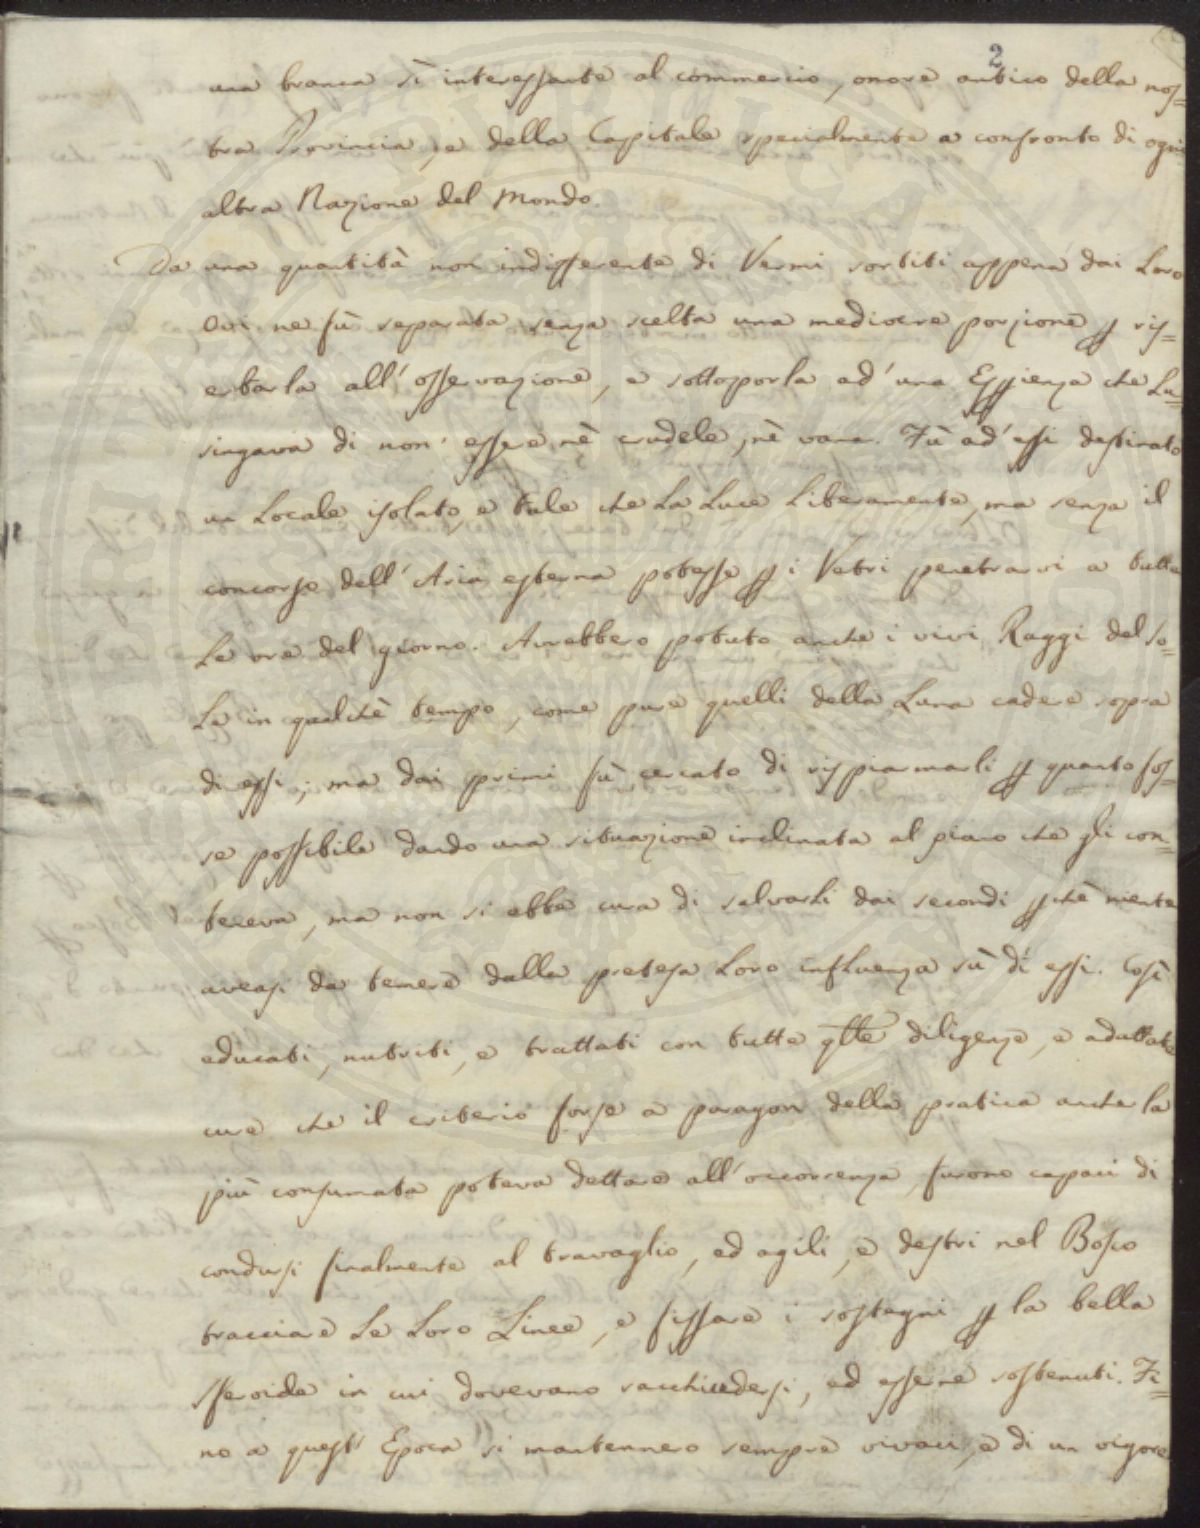 2
una branca sì interessante al commercio, onore antico della nos=
tra Provincia, e della Capitale specialmente a confronto di ogni
altra Nazione del Mondo.
Da una quantità non indifferente di Vermi sortiti appena dai Loro
Ovi ne fù separata senza scelta una mediocre porzione p ris=
erbarla all'osservazione, e sottoporla ad'una Esppienza che Lu=
singava di non' essere nè crudele, nè vana. Fù ad'essi destinato
un Locale isolato, e tale che La Luce Liberamente, ma senza il
concorso dell'Aria esterna potesse p i Vetri penetrarvi a tutte
Le ore del giorno. Avrebbero potuto anche i vivi Raggi del So=
Le in qualchè tempo, come pure quelli della Luna cadere sopra
di essi; ma dai primi fù cercato di risparmiarli p quanto fos=
se possibile dando una situazione inclinata al piano che gli con=
teneva, ma non si ebbe cura di salvarli dai secondi pchè niente
aveasi da temere dalla pretesa Loro influenza sù di essi. Così
educati, nutriti, e trattati con tutte qlle diligenze, e adattate
cure che il criterio forse a paragon della pratica anche la
più consumata poteva dettare all'occorrenza, furono capaci di
condursi finalmente al travaglio, ed agili, e destri nel Bosco
tracciare Le Loro Linee, e fissare i sostegni p la bella
sferoide in cui dovevano racchiudersi, ed esserne sostenuti. Fi=
no a quest' Epoca si mantennero sempre vivaci, e di un vigore